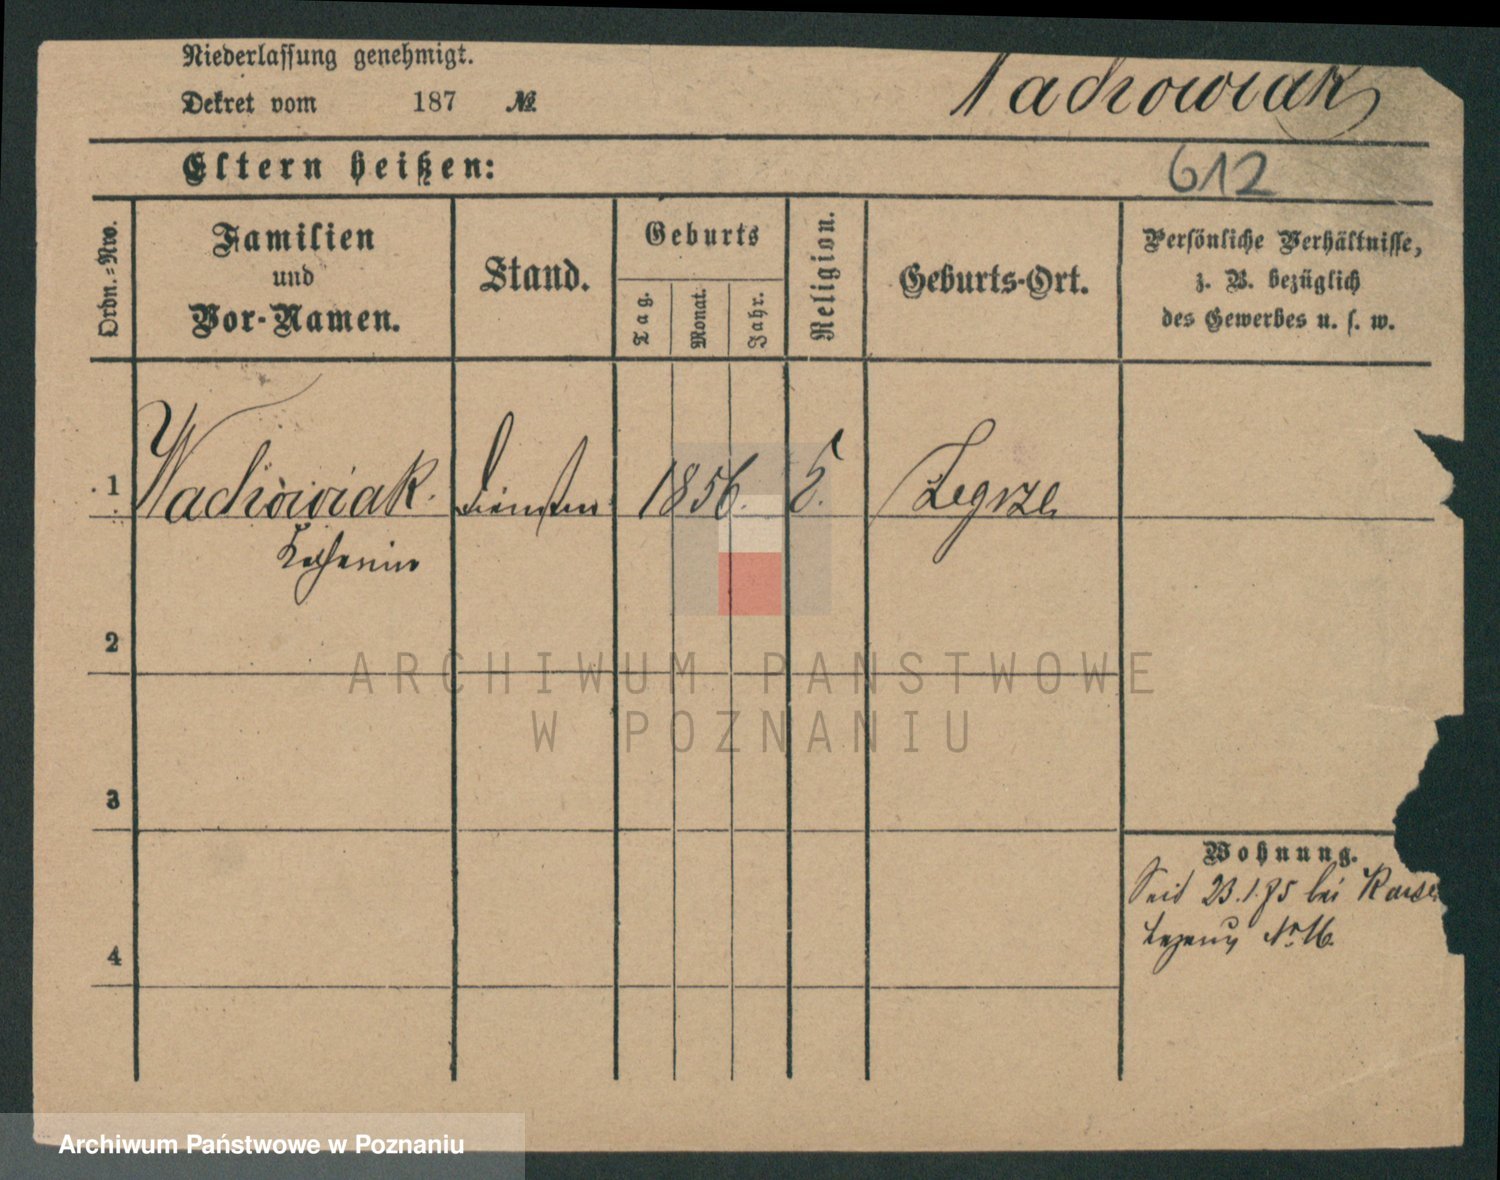 Niederlassung genehmigt.
Dekret vom 187 №
Wachowiak
Eltern heißen:
612
Ordn.=Nro.
Familien
und
Vor-Namen.
Stand.
Geburts
Tag.
Monat.
Jahr.
Religion.
Geburts-Ort.
Persönliche Verhältnisse,
z. B. bezüglich
des Gewerbes u. s. w.
1 Wachowiak. 1856. Zegrze
2
ARCHIWUM PAŃSTWOWE
W POZNANIU
3
Wohnung.
Seit 23.1.85 bei
No 16.
4
Archiwum Państwowe w Poznaniu